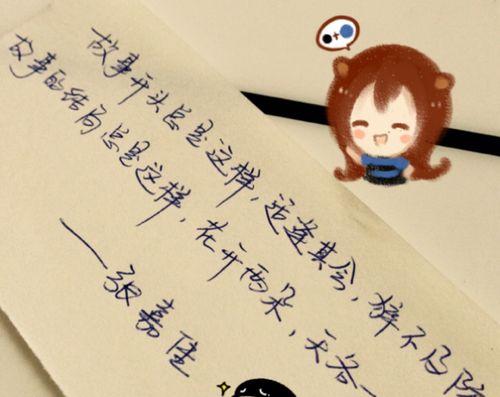 故事开头总是这样，适逢其会，猝不及防
故事的结局总是这样，花开两朵，天各一
——张嘉佳